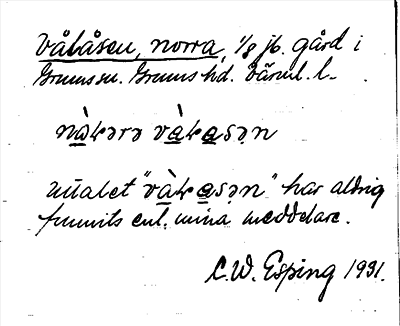 Våbåsen, norra, 1/8 jb. gård i
Grums sn. Grums hd. Värml. l.
nàkərə vàkasən
uttalet "vàkasən" har aldrig
funnits enl. mina meddelare.
C.W. Esping 1931.